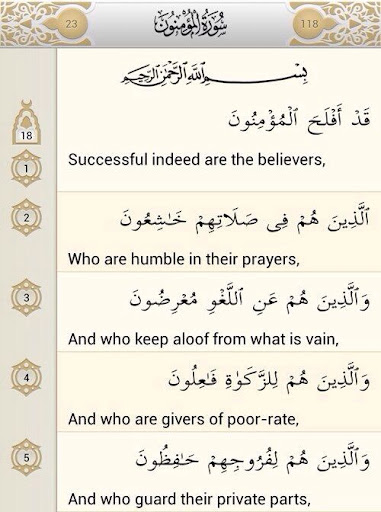 23
سُورَةُ المُؤْمِنُونَ
118
بِسْمِ ٱللَّهِ ٱلرَّحْمَٰنِ ٱلرَّحِيمِ
قَدْ أَفْلَحَ ٱلْمُؤْمِنُونَ
18
1
Successful indeed are the believers,
ٱلَّذِينَ هُمْ فِى صَلَاتِهِمْ خَٰشِعُونَ
2
Who are humble in their prayers,
وَٱلَّذِينَ هُمْ عَنِ ٱللَّغْوِ مُعْرِضُونَ
3
And who keep aloof from what is vain,
وَٱلَّذِينَ هُمْ لِلزَّكَوٰةِ فَٰعِلُونَ
4
And who are givers of poor-rate,
وَٱلَّذِينَ هُمْ لِفُرُوجِهِمْ حَٰفِظُونَ
5
And who guard their private parts,